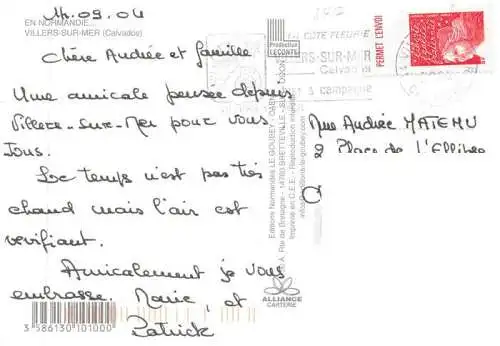 14.09.04
EN NORMANDIE...
VILLERS-SUR-MER (Calvados)
Chère Andrée et famille
Une amicale pensée depuis
Villers-sur-Mer pour vous
Tous.
Le temps n'est pas très
chaud mais l'air est
vivifiant.
Amicalement je vous
embrasse. Marie, et
Patrick
3 586130 101000
Production
LECONTE
LA COTE FLEURIE
VILLERS-SUR-MER
Calvados
& campagne
PERMET L'ENVOI
Mme Andrée MATENU
2 Place de l'Ellibeo
Editions Normandes LE GOUBEY - CAEN
Imprimé en C.E.E. - Reproduction interdite
ALLIANCE
CARTERIE